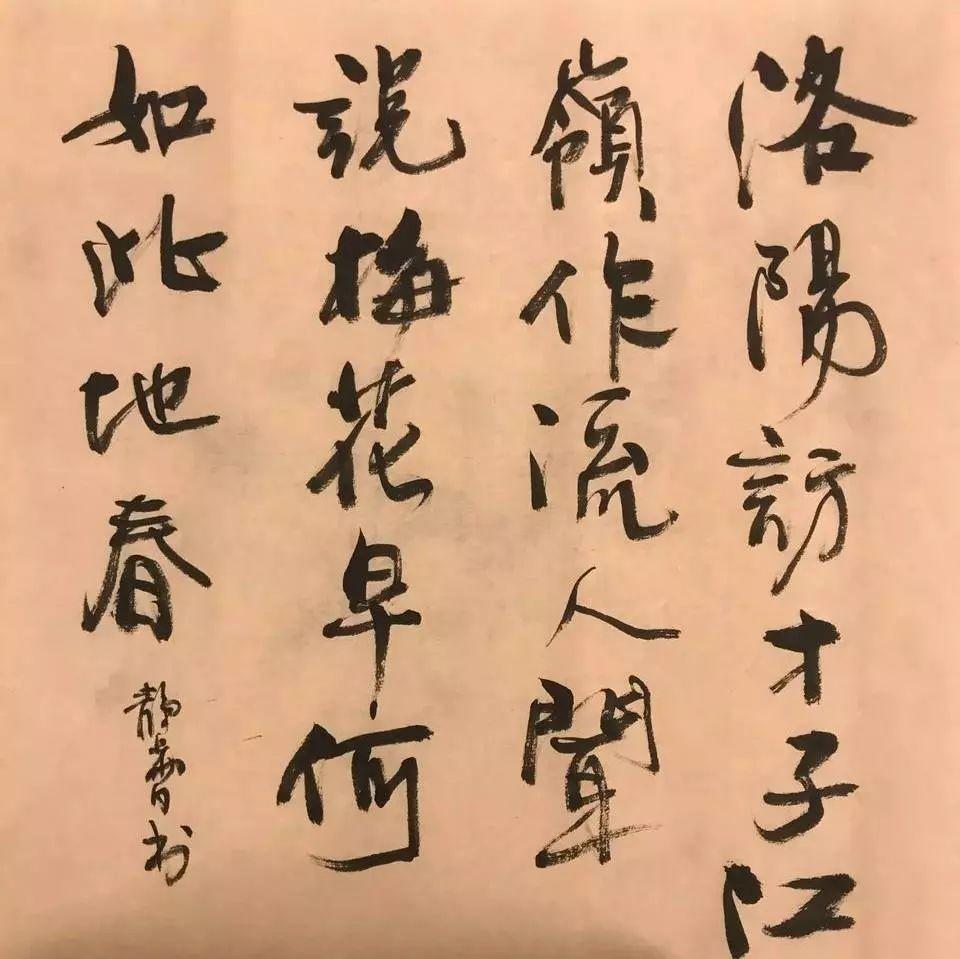 洛陽訪才子江
嶺作流人聞
說梅花早何
如此地春
靜